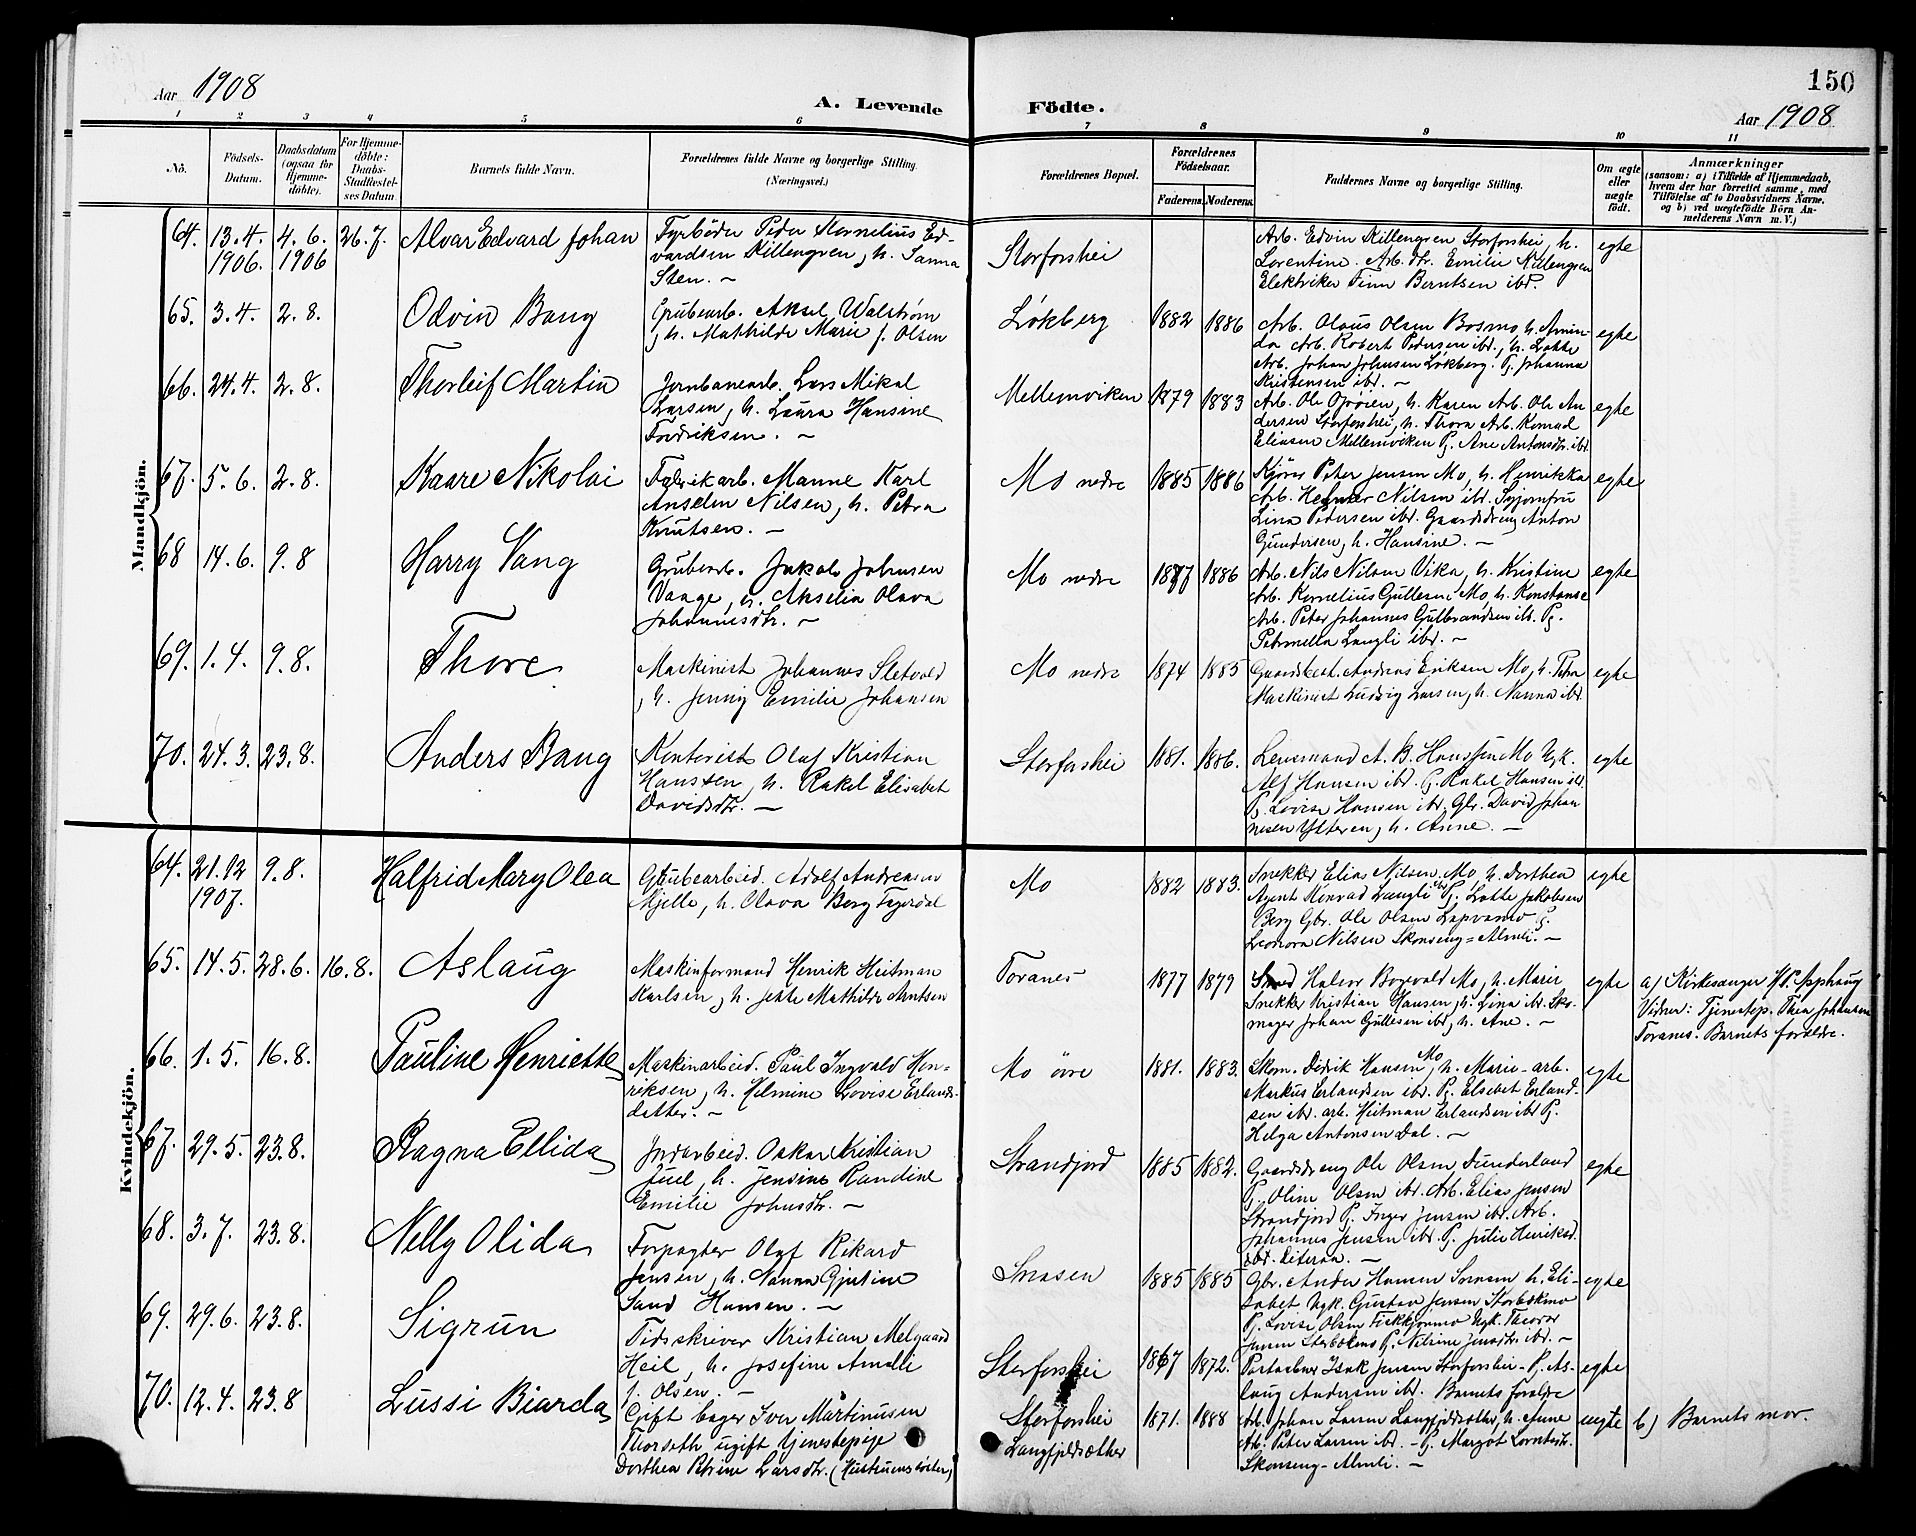 Aar 1908
A. Levende
Födte.
150
Aar 1908
1 2 3 4 5 6 7 8 9 10 11
No.
Födsels-Datum.
Daabsdatum (ogsaa for Hjemme-döbte).
For Hjemme-döbte: Daabs-Stadfæstel-ses Datum
Barnets fulde Navn.
Forældrenes fulde Navne og borgerlige Stilling. (Næringsvei.)
Forældrenes Bopæl.
Forældrenes Födselsaar.
Faderens. Moderens.
Faddernes Navne og borgerlige Stilling.
Om ægte eller uægte födt.
Anmærkninger
(saasom: a) i Tilfælde af Hjemmedaab, hvem der har forrettet samme, med Tilföielse af to Daabsvidners Navne. og b) ved uægtefödte Börn An-melderens Navn m. V.)
Mandkjön.
64. 13.4. 1906. 4.6. 1906 26.7. Alvar Edvard Johan
Fyrböder Peder Kornelius Ed-
vardsen Killengren, h. Sanna
Sten. –
Storforshei
Arb. Edvin Killengren Storforshei, h.
Lorentine. Arb. Emilie Killengren
Elektriker Finn Berntsen ibd.
egte
65. 3.4. 2.8. Odvin Bang
Grubearb. Aksel Walstrøm
, h. Mathilde Marie f. Olsen
Løkberg 1882 1886
Arb. Olaus Olsen Bosmo, h. Amin-
da Arb. Robert Pedersen ibd., h. Lotte
Arb. Johan Johnsen Løkberg. Pj. Johanna
Kristensen ibd. –
egte
66. 24.4. 2.8. Thorleif Martin
Jernbanearb. Lars Mikal
Larsen, h. Laura Hansine
Fredriksen. –
Mellemviken 1879 1883
Arb. Ole h. Karen Arb. Ole An-
dersen Storforshei, h. Thora Arb. Konrad
Eliasen Mellemviken Pj. Ane Antonsdtr. ibd.
egte
67. 5.6. 2.8. Kaare Nikolai
Fabrikarb. Manne Karl
Anselm Nilsen, h. Petra
Knutsen. –
Mo nedre 1885 1886
Peter Jensen Mo, h. Henrikka
Arb. Helmer Nilsen ibd. Syjomfru
Lina Pedersen ibd. Gaardsdreng Anton
Gundersen, h. Hansine. –
egte
68 14.6. 9.8 Harry Vang
Grubearb. Jakob Johnsen
Vaage, h. Akselia Olava
Johannesdtr. –
Mo nedre 1877 1886
Arb. Nils Nilsen Vika, h. Kristine
Arb. Kornelius Gullesen Mo, h. Konstanse
Arb. Peter Johannes Gulbrandsen ib. Pj.
Petrnella Langli ibd. –
egte
69. 1.4. 9.8. Thore
Maskinist Johannes Sletvold
, h. Jenny Emilie Johansen
Mo nedre 1874 1885
Andreas Eriksen Mo, h. Petra
Maskinist Ludvig Larsen, h. Nanna ibd.
egte
70. 24.3. 23.8. Anders Bang
Kontorist Olaf Kristian
Hanssen, h. Rakel Elisabet
Davidsdtr. –
Storforshei 1881. 1886.
Lensmand A. B. Hanssen Mo Ugk.
Alf Hansen ibd. Pj. Rakel Hansen ibd.
Pj. Lovise Hansen ibd. Gbr. David Johan
nesen Ytteren, h. Anne. –
egte
Kvindekjön.
64. 21.12 1907. 9.8. Halfrid Mary Olea
Grubearbeid. Adolf Andreasen
Mjelle, h. Olava Berg Fagerdal
Mo 1882 1883.
Snekker Elias Nilsen Mo, h. Dorthea
Agent Konrad Langli ibd Pj. Lotte Jakobsen
Berg Gbr. Ole Olsen Pj.
Leonora Nilsen Skonseng=Almli. –
egte
65. 14.5. 28.6. 16.8. Aslaug
Maskinformand Henrik Heitman
Karlsen, h. Jette Mathilde Arntsen
Toranes 1877 1879
Smed Halvor Borsvald Mo, h. Marie
Snekker Kristian Hansen, h. Lina ibd. Sko-
mager Johan Gullesen ibd., h. Ane. –
egte
a) Kirkesanger
Vidner: Tjenestep. Thea Johansen
Toranes. Barnets forældre.
66. 1.5. 16.8. Pauline Henriette
Maskinarbeid. Paul Ingvald Hen-
riksen, h. Helmine Lovise Erlands-
datter. –
Mo övre 1881. 1883.
Skom. Didrik Hansen Mo, h. Marie – arb.
Markus Erlandsen ibd. Pj. Elsebet Erland-
sen ibd. arb. Heitman Erlandsen ibd Pj.
Helga Antonsen Dal. –
egte
67. 29.5. 23.8. Ragna Ellida
Jordarbeid. Oskar Kristian
Juel, h. Jensine Randine
Emilie Johnsdtr. –
Strandjord 1885 1882.
Gaardsdreng Ole Olsen Dunderland
Pj. Oline Olsen ibd. Arb. Elias Jensen
Strandjord Pj. Inger Jensen ibd. Arb.
Johannes Jensen ibd. Pj. Julie Henriksd.
egte
68. 3.7. 23.8. Nelly Olida
Forpagter Olaf Rikard
Jensen, h. Nanna Gjetine
Sand Hansen. –
Snasen 1885 1885
Gbr. Ander Hansen h. Eli-
sabet Ugk. Gustav Jensen Storbekmo
Pj. Lovise Olsen Ugk. Theodor
Jensen Storbekmo Pj. Nilsine Jensdtr. ibd. –
egte
69. 29.6. 23.8. Sigrun
Tidsskriver Kristian Melgaard
Heil, h. Josefine Amalie
f. Olsen. –
Storforshei 1867 1872.
Isak Jensen Storforshei – Pj. As-
laug Andersen ibd. Barnets forældre
egte
70. 12.4. 23.8 Lussi Biarda
Gift bager Iver Martinusen
Thorseth ugift tjenestepige
Dorthea Petrine Larsdtr. (Hustruens søster)
Storforshei
Langfjeldsæther
1871. 1888
Arb. Johan Larsen Langfjeldsæther, h. Anne
Arb. Peter Larsen ibd. – Pj. Margot
Skonseng – Almli. –
uegte
b) Barnets mor.